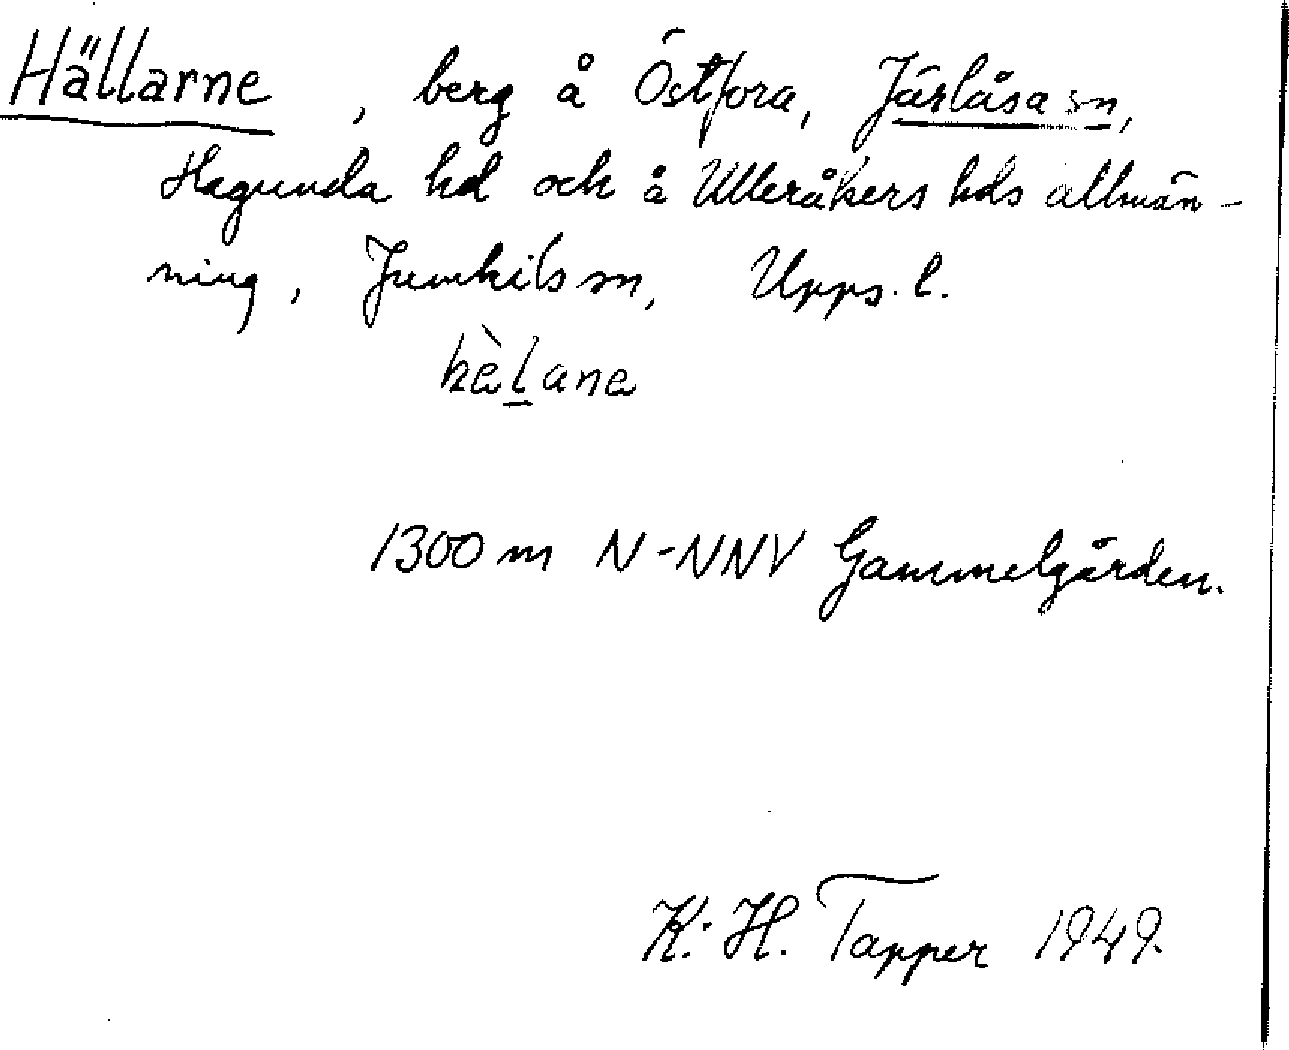 Hällarne, berg å Östfora, Järlåsa sn,
Hagunda hd och å Ulleråkers hds allmän-
ning, Jumkils sn, Upps. l.
hèl̲ane
1300 m N-NNV Gammelgården.
K. H. Tapper 1949.